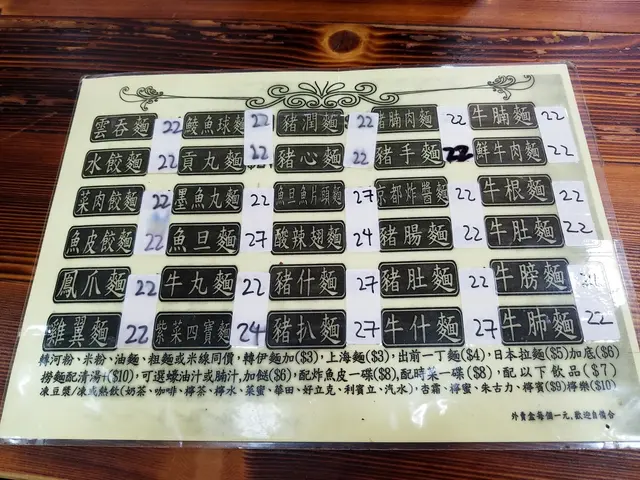 雲吞麵 22 鯪魚球麵 22 豬潤麵 22 豬腩肉麵 22 牛腩麵 22
水餃麵 22 貢丸麵 22 豬心麵 22 豬手麵 22 鮮牛肉麵 22
菜肉餃麵 22 墨魚丸麵 22 魚旦魚片頭麵 27 京都炸醬麵 22 牛根麵 22
魚皮餃麵 22 魚旦麵 27 酸辣翅麵 24 豬腸麵 22 牛肚麵 22
鳳爪麵 22 牛丸麵 22 豬什麵 27 豬肚麵 22 牛膀麵
雞翼麵 22 紫菜四寶麵 24 豬扒麵 27 牛什麵 27 牛肺麵 22
轉河粉、米粉、油麵、粗麵或米線同價,轉伊麵加($3),上海麵($3),出前一丁麵($4),日本拉麵($5)加底($6)
撈麵配清湯+($10),可選蠔油汁或腩汁,加餸($6),配炸魚皮一碟($8),配時菜一碟($8),配以下飲品($7)
凍豆漿/凍或熱飲(奶茶、咖啡、檸茶、檸水、菜蜜、華田、好立克、利賓立、汽水),杏霜、檸蜜、朱古力、檸賓($9)檸樂($10)
外賣盒每個一元,歡迎自備合